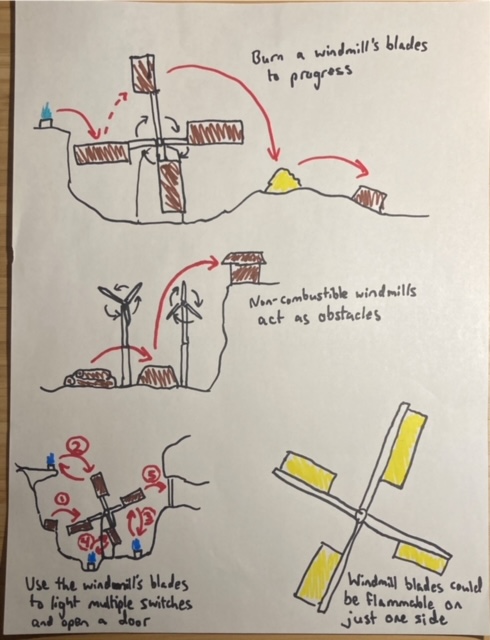 Burn a windmill's blades
to progress
Non-combustible windmills
act as obstacles
②
⑤
①
③
④
Use the windmill's blades
to light multiple switches
and open a door
Windmill blades could
be flammable on
just one side